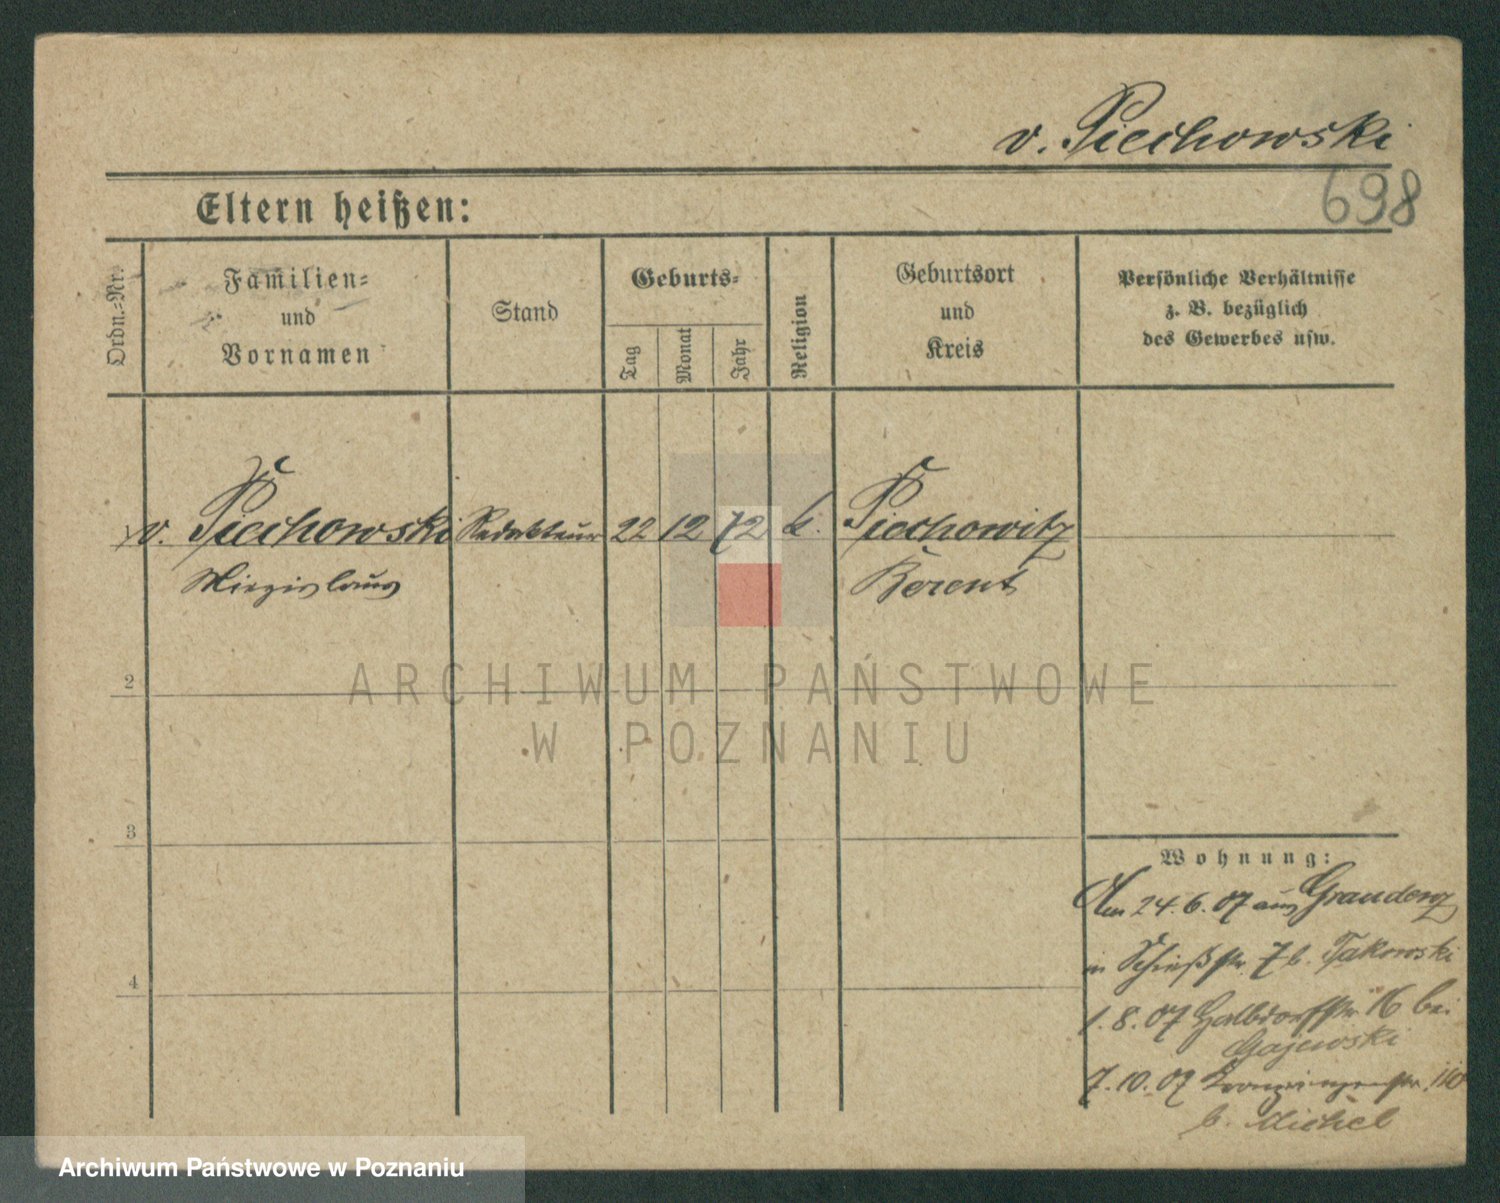 v. Piechowski
698
Eltern heißen:
Ordn.-Nr.
Familien-
und
Vornamen
Stand
Geburts-
Tag
Monat
Jahr
Religion
Geburtsort
und
Kreis
Persönliche Verhältnisse
z. B. bezüglich
des Gewerbes usw.
v. Piechowski Redakteur 22 12 72 k. Piechowitz
Miezislaus Berent
2
3
4
Wohnung:
Am 24.6.07 aus Graudenz
in Schießstr. 7 b. Takowski
1.8.07 Halbdorfstr. 16 bei
Gajewski
7.10.07 Kronprinzenstr. 110
b. Michel
ARCHIWUM PAŃSTWOWE
W POZNANIU
Archiwum Państwowe w Poznaniu